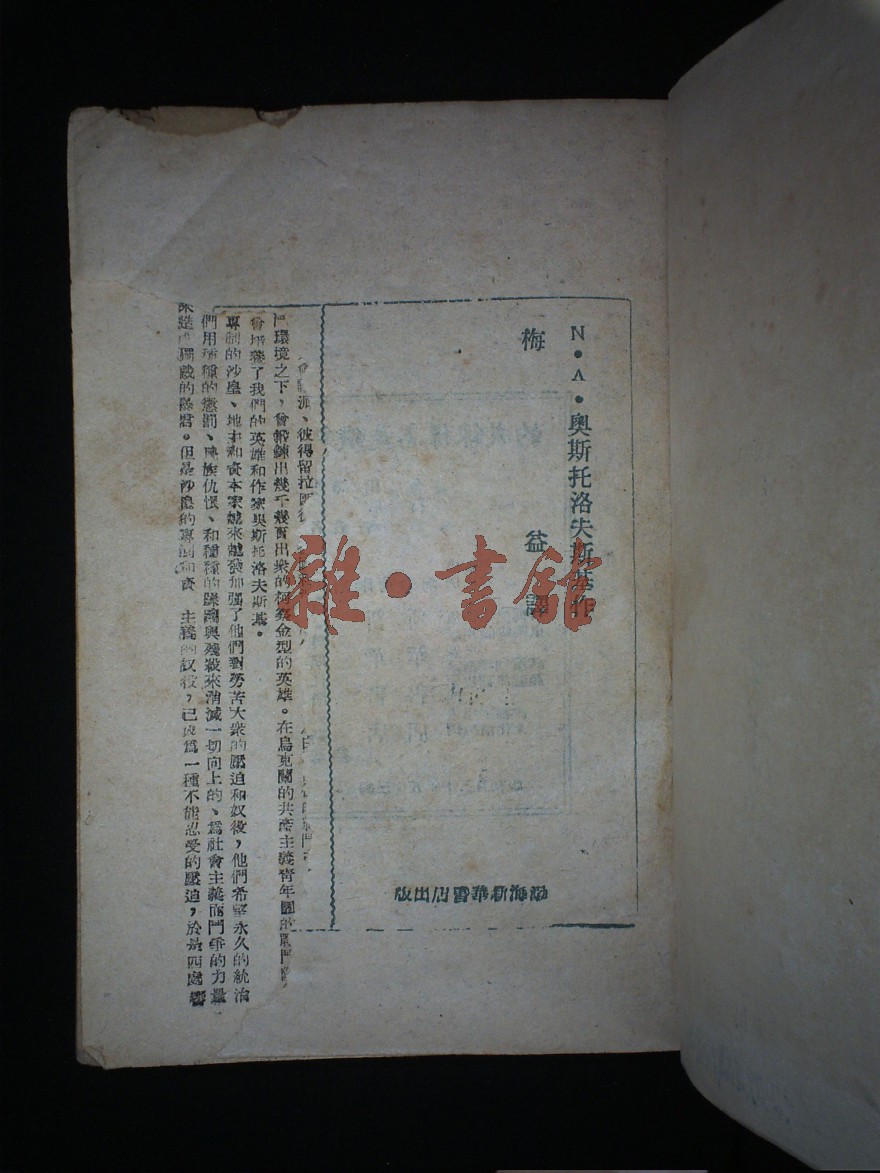 N•A•奧斯托洛夫斯基作
梅益譯
渤海新華書店出版
雜•書館
派、彼得留拉
鬥環境之下，會鍛鍊出幾千幾百出衆的柯察金型的英雄。在烏克蘭的共產主義青年團的戰鬥
會培養了我們的英雄和作家奧斯托洛夫斯基。
專制的沙皇、地主和資本家越來越發加强了他們對勞苦大衆的壓迫和奴役，他們希望永久的統治
們用種種的懲罰、民族仇恨、和種種的蹂躪與殘殺來消滅一切向上的、爲社會主義而鬥爭的力量
獨裁的暴君。但是沙皇的專制和資 主義的奴役，已成爲一種不能忍受的壓迫，於是四處響